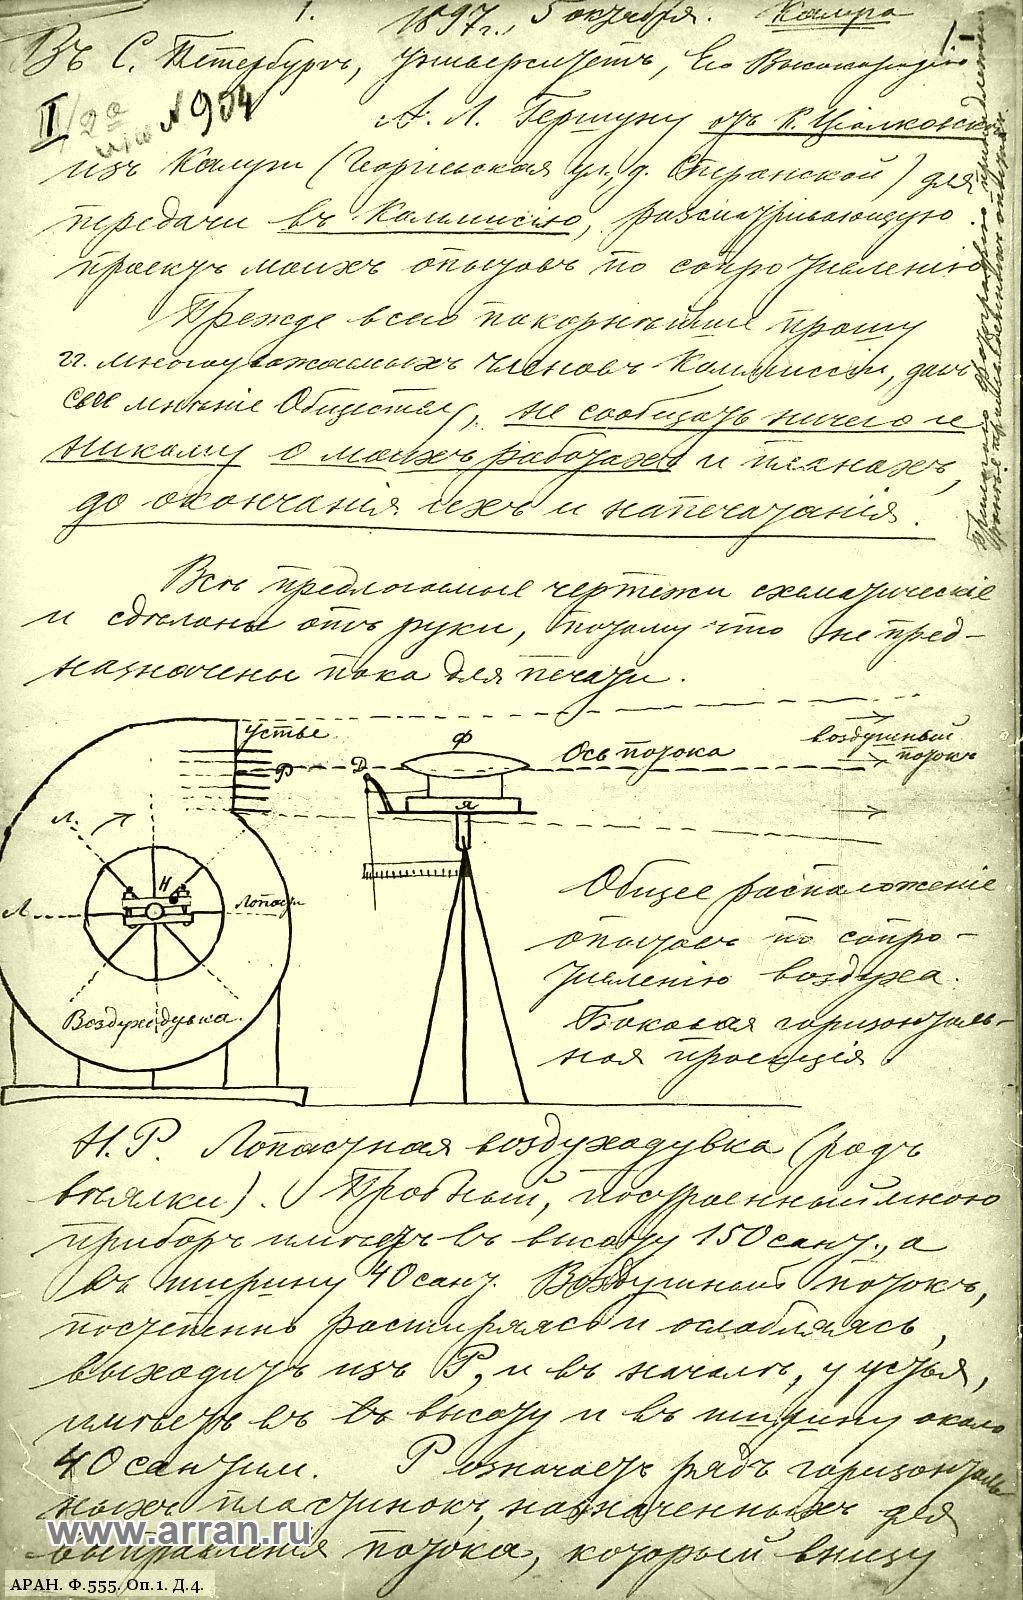 1.
1897 г., 5 октября. Калуга
1.
Въ С. Петербургъ, Университетъ, Его Высокородію
II
№ 954
А. Л. Гершуну отъ К. Ціолковскаго
изъ Калуги (Георгіевская ул., д. Сперанской) для
передачи въ Коммисію, разсматривающую
проектъ моихъ опытовъ по сопротивленію
Прежде всего покорнѣйше прошу
гг. многоуважаемыхъ членовъ Коммиссіи, давъ
свое мнѣніе Обществу, не сообщать ничего и
никому о моихъ работахъ и планахъ,
до окончанія ихъ и напечатанія.
Всѣ предлагаемые чертежи схематическіе
и сдѣланы отъ руки, потому что не пред-
назначены пока для печати.
устье
Р
Д
Ф
Я
Ось потока
воздушный
потокъ
Л.
Л
Н
Лопасти
Воздуходувка.
Общее расположеніе
опытовъ по сопро-
тивленію воздуха.
Боковая горизонталь-
ная проекція
Н.Р. Лопастная воздуходувка (родъ
вѣялки). Пробный, построенный мною
приборъ имѣетъ въ высоту 150 сант., а
въ ширину 40 сант. Воздушный потокъ,
постепенно расширяясь и ослабляясь,
выходитъ изъ Р, и въ началѣ, у устья,
имѣетъ въ высоту и въ ширину около
40 сантим. Р означаетъ рядъ горизонталь-
ныхъ пластинокъ, назначенныхъ для
выправленія потока, который внизу
www.arran.ru
АРАН. Ф.555. Оп.1. Д.4.